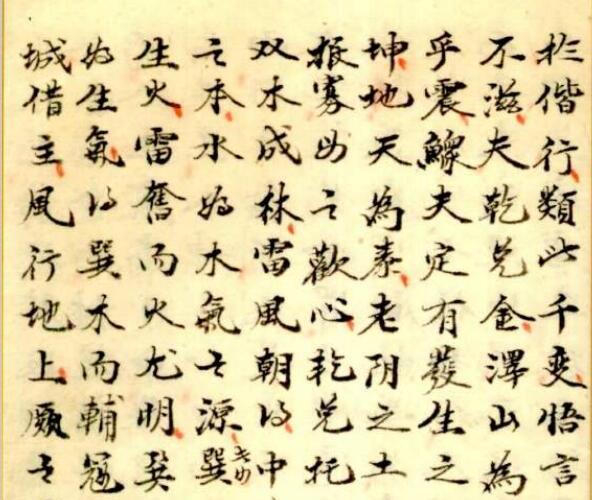 於偕行類此千变悟言
不滋夫乾兑金澤山為
乎震鰥夫定有發生之
坤地天為泰老阴之土
寡之歡心乾兑托
双木成林雷風朝得中
之本水为木氣之源巽
生火雷奮而火尤明
为生氣得巽木而輔
城借主風行地上